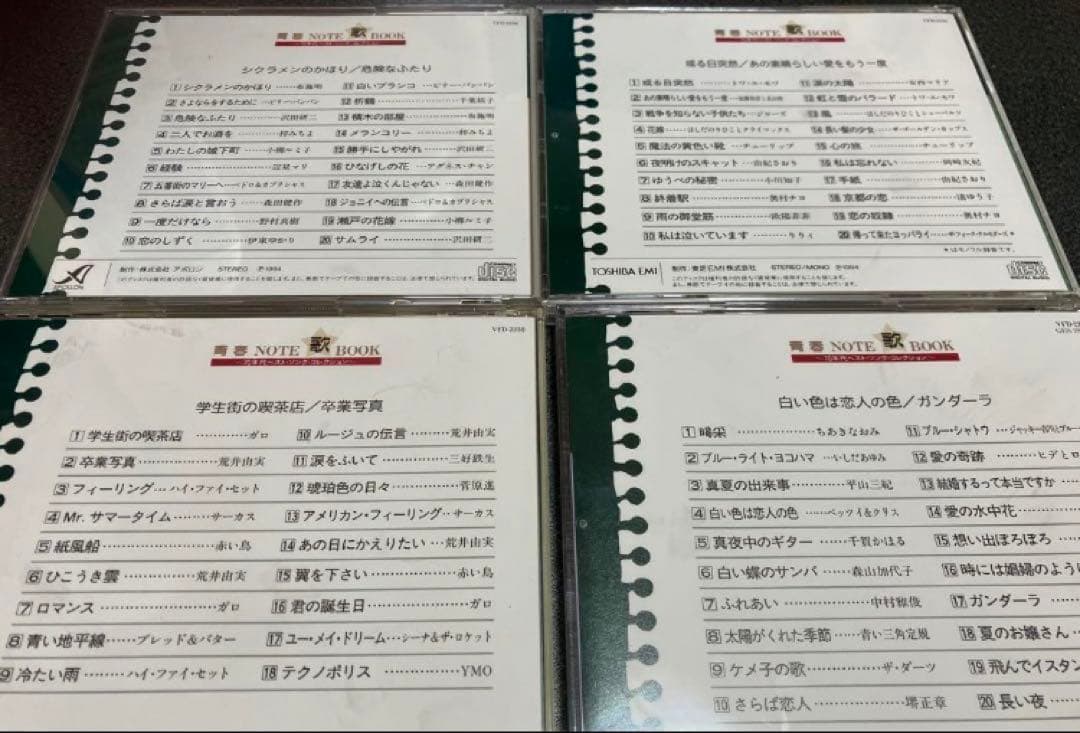 青春 NOTE 歌 BOOK
シクラメンのかほり／危険なふたり
1 シクラメンのかほり……布施明
2 さよならをするために…ビリー・バンバン
3 危険なふたり………沢田研二
4 二人でお酒を………梓みちよ
5 わたしの城下町……小柳ルミ子
6 経験………辺見マリ
7 五番街のマリーへ……ペドロ&カプリシャス
8 さらば涙と言おう……森田健作
9 一度だけなら………野村真樹
10 恋のしずく………伊東ゆかり
11 白いブランコ…ビリー・バンバン
12 折鶴………千葉紘子
13 積木の部屋………布施明
14 メランコリー………梓みちよ
15 勝手にしやがれ……沢田研二
16 ひなげしの花…アグネス・チャン
17 友達よ泣くんじゃない…森田健作
18 ジョニイへの伝言…ペドロ&カプリシャス
19 瀬戸の花嫁………小柳ルミ子
20 サムライ………沢田研二
APOLLON
制作・株式会社 アポロン STEREO ℗1994
COMPACT DISC DIGITAL AUDIO
青春 NOTE 歌 BOOK
或る日突然／あの素晴らしい愛をもう一度
1 或る日突然………トワ・エ・モワ
2 あの素晴らしい愛をもう一度
3 戦争を知らない子供たち…ジローズ
4 花嫁…はしだのりひことクライマックス
5 魔法の黄色い靴…チューリップ
6 夜明けのスキャット…由紀さおり
7 ゆうべの秘密………小川知子
8 終着駅………奥村チヨ
9 雨の御堂筋………欧陽菲菲
10 私は泣いています………りりィ
11 涙の太陽………安西マリア
12 虹と雪のバラード…トワ・エ・モワ
13 風…はしだのりひことシューベルツ
14 長い髪の少女…ザ・ゴールデン・カップス
15 心の旅………チューリップ
16 私は忘れない………岡崎友紀
17 手紙………由紀さおり
18 京都の恋………渚ゆう子
19 恋の奴隷………奥村チヨ
20 帰って来たヨッパライ…ザ・フォーク・クルセダーズ＊
＊はモノラル録音です。
TOSHIBA EMI
制作：東芝EMI株式会社 STEREO/MONO ℗1994
COMPACT DISC DIGITAL AUDIO
VFD-2350
青春 NOTE 歌 BOOK
〜70年代ベスト・ソング・コレクション〜
学生街の喫茶店／卒業写真
1 学生街の喫茶店…………ガロ
2 卒業写真………………荒井由実
3 フィーリング…ハイ・ファイ・セット
4 Mr. サマータイム………サーカス
5 紙風船……………………赤い鳥
6 ひこうき雲……………荒井由実
7 ロマンス…………………ガロ
8 青い地平線……ブレッド&バター
9 冷たい雨………ハイ・ファイ・セット
10 ルージュの伝言………荒井由実
11 涙をふいて…………三好鉄生
12 琥珀色の日々…………菅原進
13 アメリカン・フィーリング‥サーカス
14 あの日にかえりたい…荒井由実
15 翼を下さい……………赤い鳥
16 君の誕生日………………ガロ
17 ユー・メイ・ドリーム…シーナ&ザ・ロケット
18 テクノポリス…………YMO
青春 NOTE 歌 BOOK
〜70年代ベスト・ソング・コレクション〜
白い色は恋人の色／ガンダーラ
1 喝采………………ちあきなおみ
2 ブルー・ライト・ヨコハマ…いしだあゆみ
3 真夏の出来事………平山三紀
4 白い色は恋人の色…ベッツイ&クリス
5 真夜中のギター……千賀かほる
6 白い蝶のサンバ……森山加代子
7 ふれあい……………中村雅俊
8 太陽がくれた季節……青い三角定規
9 ケメ子の歌……………ザ・ダーツ
10 さらば恋人……………堺正章
11 ブルー・シャトウ…ジャッキー吉川とブルー・
12 愛の奇跡…………ヒデとロ
13 結婚するって本当ですか
14 愛の水中花
15 想い出ぼろぼろ
16 時には娼婦のように
17 ガンダーラ
18 夏のお嬢さん
19 飛んでイスタン
20 長い夜